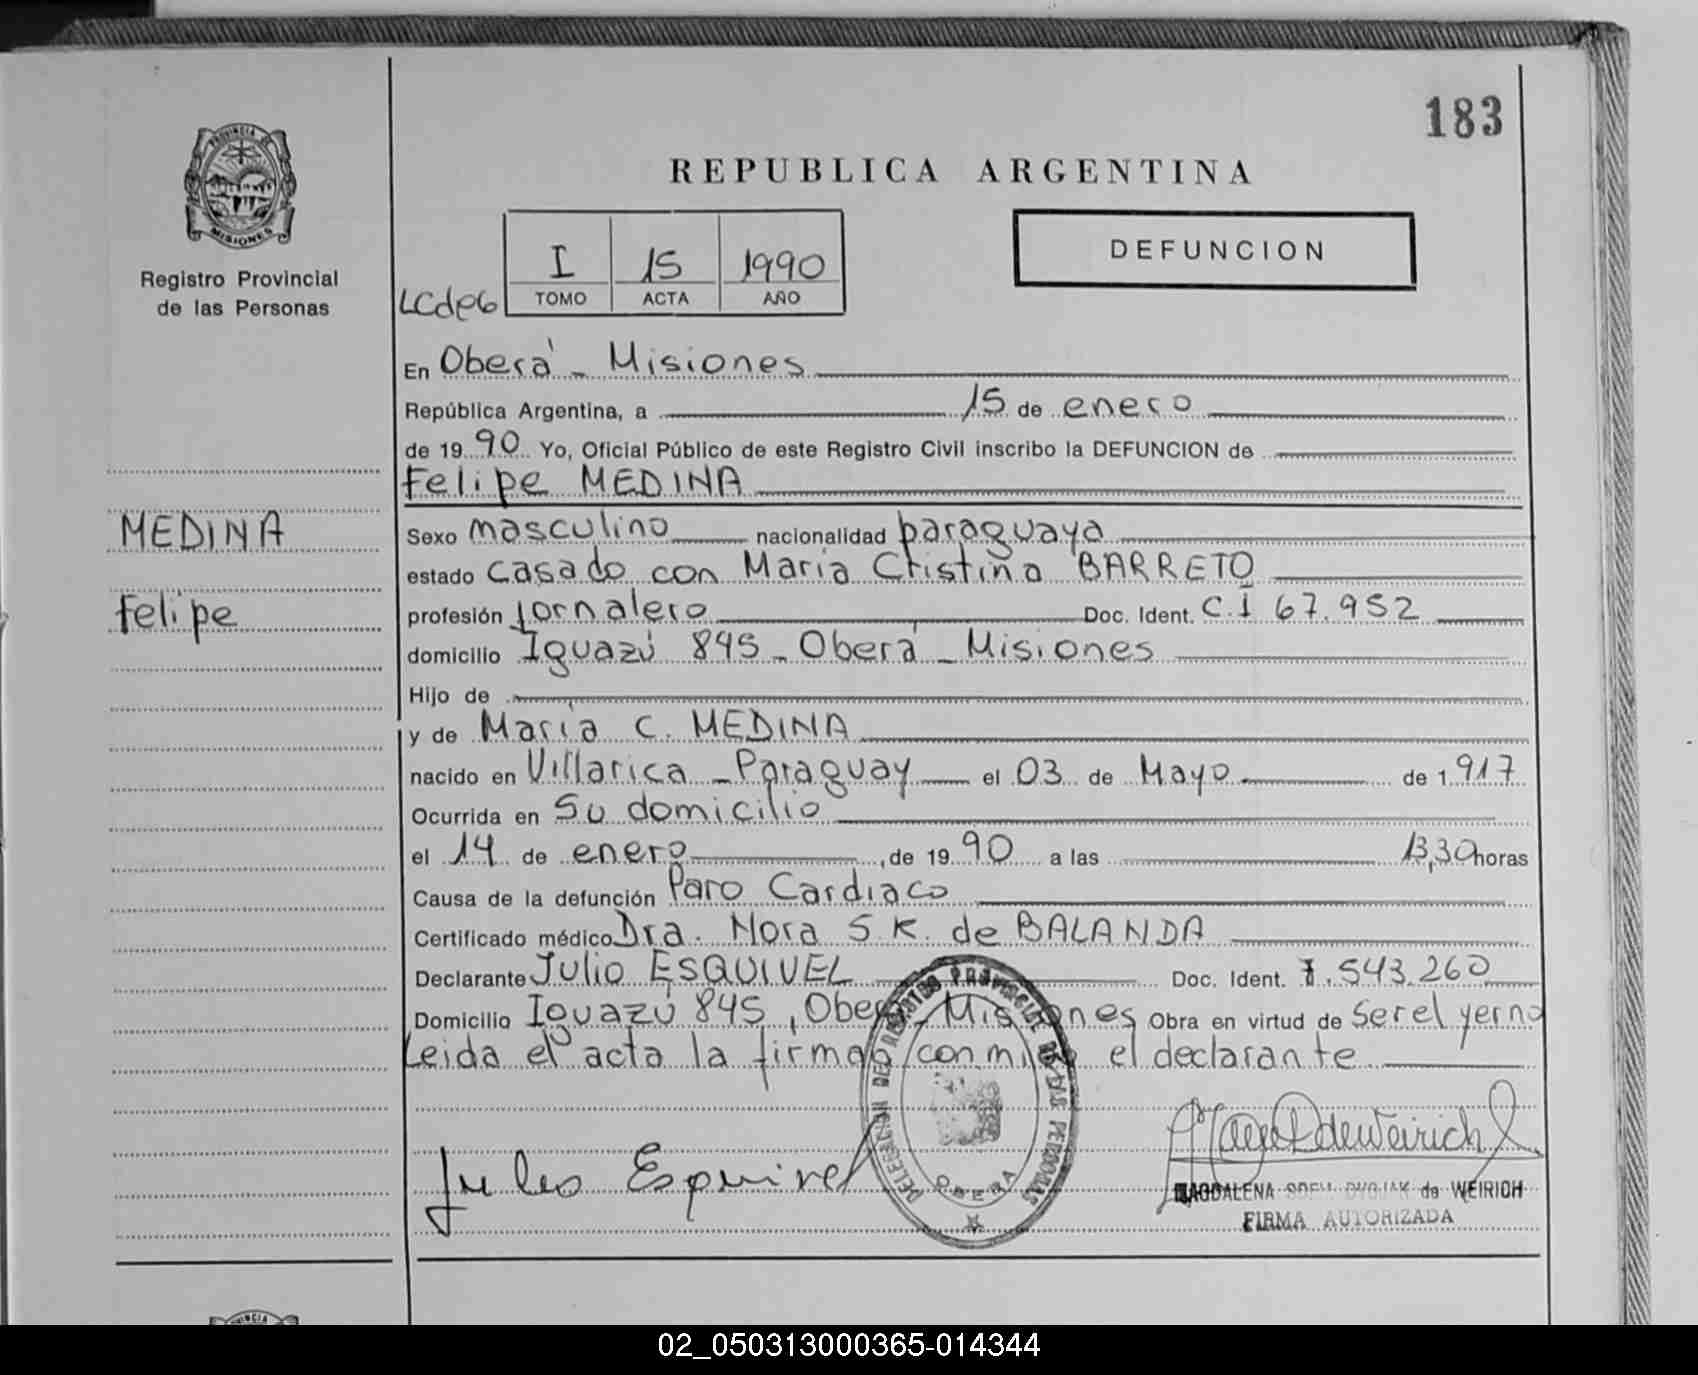 183
PROVINCIA DE
MISIONES
Registro Provincial
de las Personas
REPUBLICA ARGENTINA
I 15 1990
TOMO ACTA AÑO
DEFUNCION
En Oberá - Misiones
República Argentina, a 15 de enero
de 19 90 Yo, Oficial Público de este Registro Civil inscribo la DEFUNCION de
Felipe MEDINA
MEDINA
Felipe
Sexo masculino nacionalidad paraguaya
estado casado con María Cristina BARRETO
profesión jornalero Doc. Ident. C.I 67.952
domicilio Iguazú 845 - Oberá - Misiones
Hijo de
y de María C. MEDINA
nacido en Villarica - Paraguay el 03 de Mayo de 1.917
Ocurrida en Su domicilio
el 14 de enero, de 19 90 a las 13,30 horas
Causa de la defunción Paro Cardiaco
Certificado médico Dra. Nora S K. de BALANDA
Declarante Julio ESQUIVEL Doc. Ident. 7.543.260
Domicilio Iguazú 845, Oberá - Misiones Obra en virtud de Ser el yerno
Leida el acta la firma conmigo el declarante
DELEGACION DEL REGISTRO PROVINCIAL DE LAS PERSONAS
OBERA
Julio Esquivel
MAGDALENA de WEIRICH
FIRMA AUTORIZADA
02_050313000365-014344